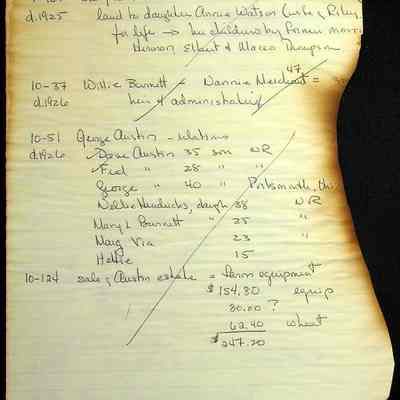 d.1925 land to daughter Annie Watson (wife of Riley
for life → her children by former marri
Herman Elbert & Maceo Thompson
47
10-37 Willie Burnett - Nannie Merchant =
d.1926 heir & administratrix
10-51 George Austin -
d.1926 Austin 35 son NR
Fred " 28 " "
George " 40 " Portsmouth, Ohio
Nellie Hendricks, daugh 38 NR
Mary L Burnett " 25 "
Marg Via 23 "
Hettie 15
10-124 sale of Austin estate = farm equipment
$154.80 equip
30.00 ?
62.40 wheat
$247.20